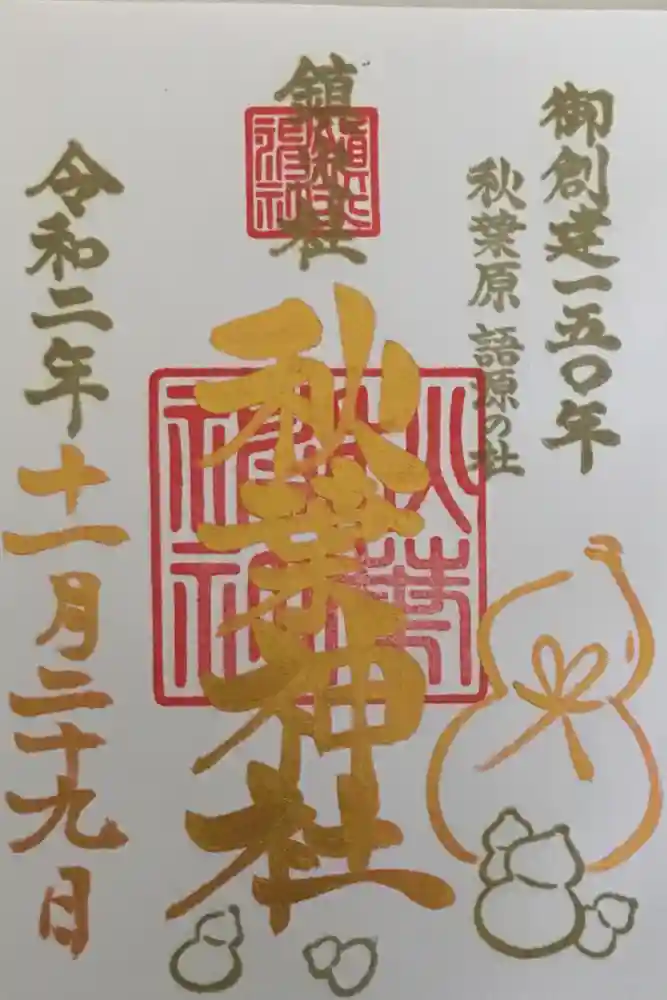 御創建一五〇年
秋葉原 語源の社
鎮火社
秋葉神社
令和二年十一月二十九日